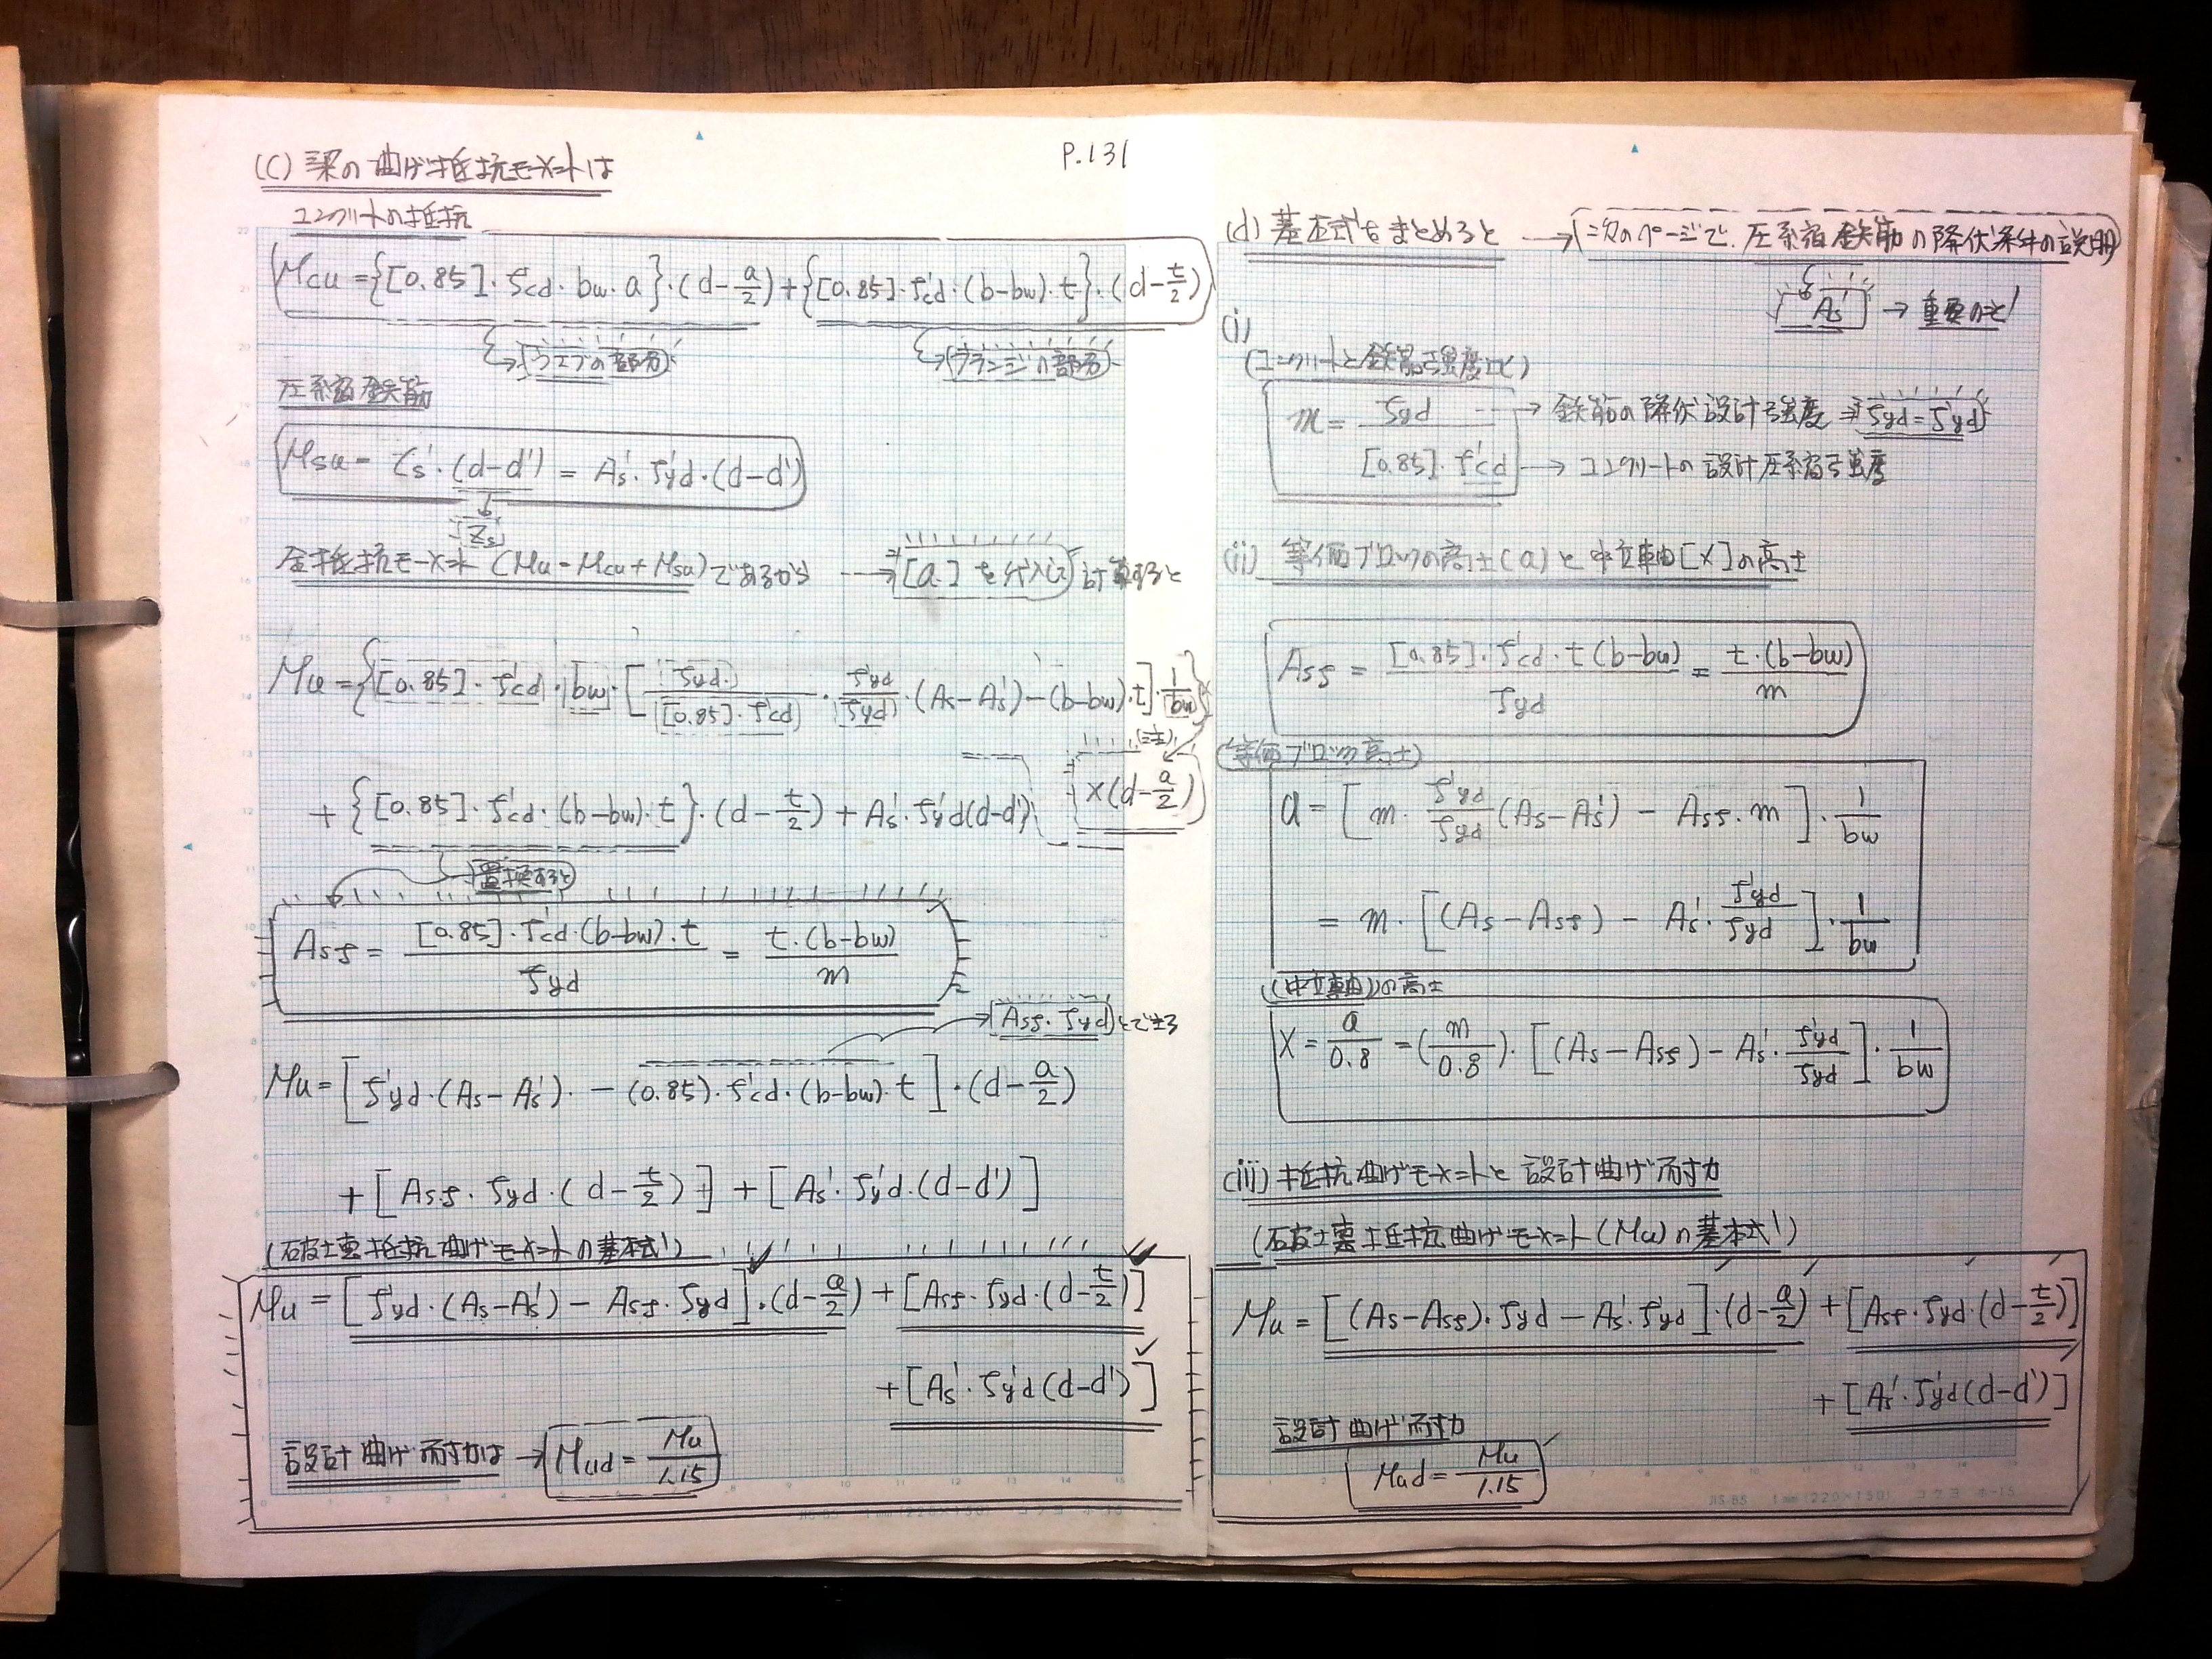 P.131
(C) 梁の曲げ抵抗モーメントは
コンクリートの抵抗
Mcu = {[0.85]・f'cd・bw・a}・(d-a/2)+{[0.85]・f'cd・(b-bw)・t}・(d-t/2)
→ウエブの部分 →フランジの部分
圧縮鉄筋
Msu = Cs'・(d-d') = As'・f'yd・(d-d')
Zs
全抵抗モーメント (Mu = Mcu + Msu) であるから → [a] を代入し計算すると
Mu = {[0.85]・f'cd・bw・[fyd/[0.85]・f'cd・f'yd/fyd・(As-As')-(b-bw)・t]・1/bw}
×(d-a/2)
+ {[0.85]・f'cd・(b-bw)・t}・(d-t/2) + As'・f'yd(d-d')
置換すると
Asf = [0.85]・f'cd・(b-bw)・t/fyd = t・(b-bw)/m
→ Asf・fyd とできる
Mu = [f'yd・(As-As')・-(0.85)・f'cd・(b-bw)・t]・(d-a/2)
+ [Asf・fyd・(d-t/2)] + [As'・f'yd・(d-d')]
(破壊抵抗曲げモーメントの基本式)
Mu = [f'yd・(As-As') - Asf・fyd]・(d-a/2) + [Asf・fyd・(d-t/2)]
+ [As'・f'yd(d-d')]
設計曲げ耐力は → Mud = Mu/1.15
(d) 基本式をまとめると → 次のページで、圧縮鉄筋の降伏条件の説明
As' → 重要のこと!
(i)
(コンクリートと鉄筋強度比)
m = fyd/[0.85]・f'cd
→ 鉄筋の降伏設計強度 ⇒ fyd=f'yd
→ コンクリートの設計圧縮強度
(ii) 等価ブロックの高さ(a)と中立軸[X]の高さ
Asf = [0.85]・f'cd・t(b-bw)/fyd = t・(b-bw)/m
(等価ブロック高さ)
a = [m・f'yd/fyd(As-As') - Asf・m]・1/bw
= m・[(As-Asf) - As'・f'yd/fyd]・1/bw
(中立軸)の高さ
X = a/0.8 = (m/0.8)・[(As-Asf)-As'・f'yd/fyd]・1/bw
(iii) 抵抗曲げモーメントと設計曲げ耐力
(破壊抵抗曲げモーメント(Mu)の基本式)
Mu = [(As-Asf)・fyd - As'・f'yd]・(d-a/2) + [Asf・fyd・(d-t/2)]
+ [As'・f'yd(d-d')]
設計曲げ耐力
Mud = Mu/1.15